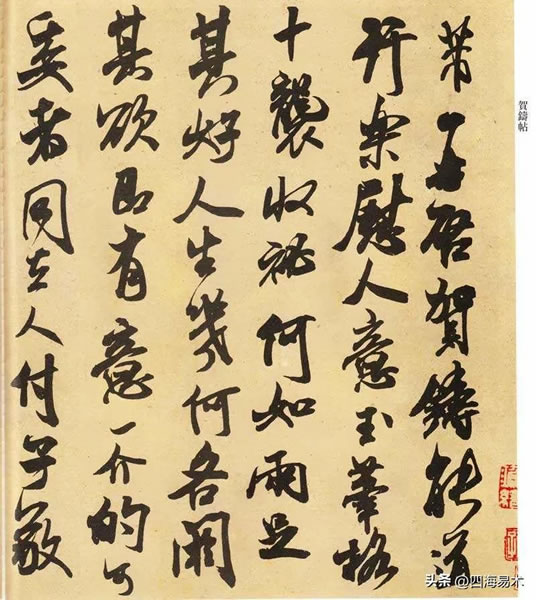 賀鑄帖
芾頓首啓賀鑄能道
行樂慰人意玉筆格
十襲收祕何如兩足
其好人生幾何各閼
其欲即有意一介的可
委者同去人付子敬
头条 @四海易木